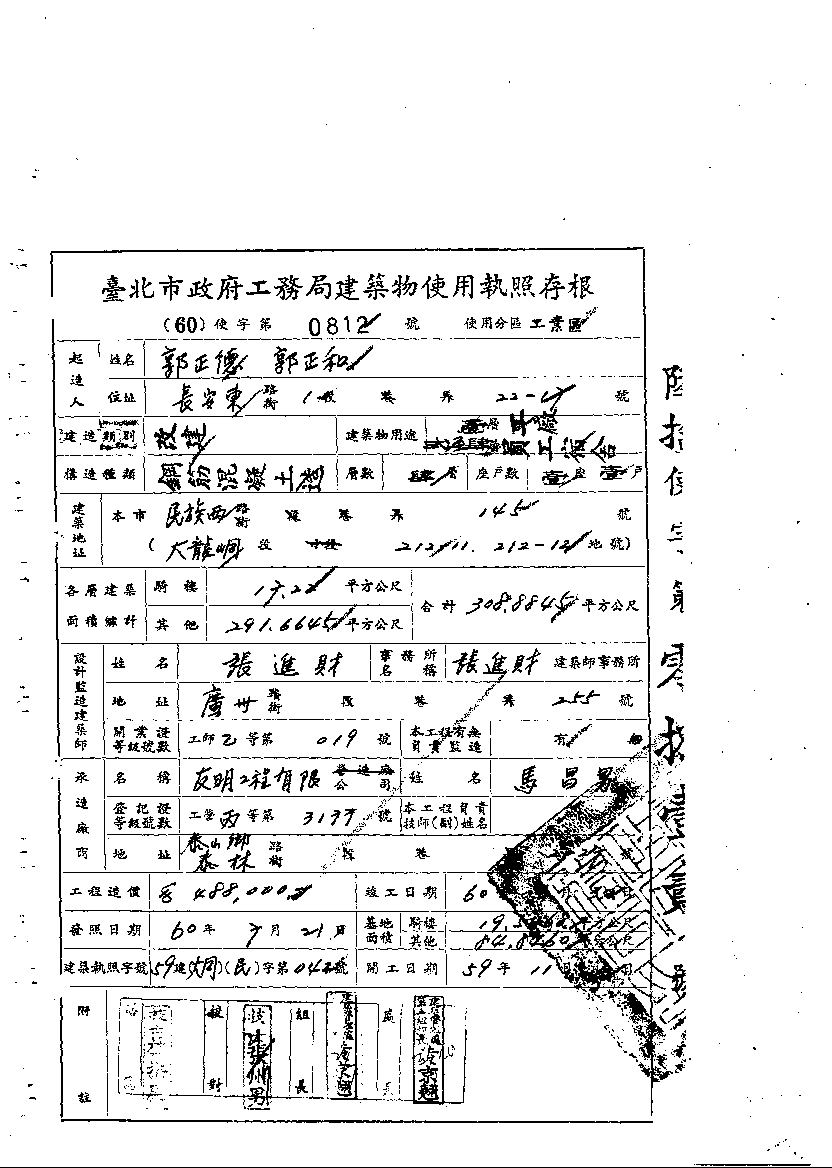 臺北市政府工務局建築物使用執照存根
(60)使字第 0812 號 使用分區 工業區
起造人 姓名 郭正德 郭正和
住址 長安東 路街 1 段 巷 弄 22-17 號
建造類別 改建 建築物用途 壹層 工廠 員工宿舍
構造種類 鋼筋混凝土造 層數 肆層 座戶數 壹座壹戶
建築地址 本市 民族西 路街 段 巷 弄 145 號
(大龍峒 段 小段 212-11. 212-12 地號)
各層建築面積總計 騎樓 17.22 平方公尺 合計 308.8845 平方公尺
其他 291.6645 平方公尺
設計監造建築師 姓名 張進財 事務所名稱 張進財 建築師事務所
地址 廣州 路街 段 巷 弄 255 號
開業證等級號數 工師乙等第 019 號 本工程有無負責監造 有
承造廠商 名稱 友明工程有限 營造廠公司 姓名 馬昌
登記證等級號數 工營丙等第 3137 號 本工程負責技師(副)姓名
地址 泰山鄉 泰林 路街 段 巷 號
工程造價 488,000 竣工日期 60
發照日期 60年 7月 21日 基地面積 騎樓 平方公尺
其他 平方公尺
建築執照字號 59建(大同)(民)字第042號 開工日期 59年 11月
附註 校對 組長
陸拾使字第零捌壹貳號